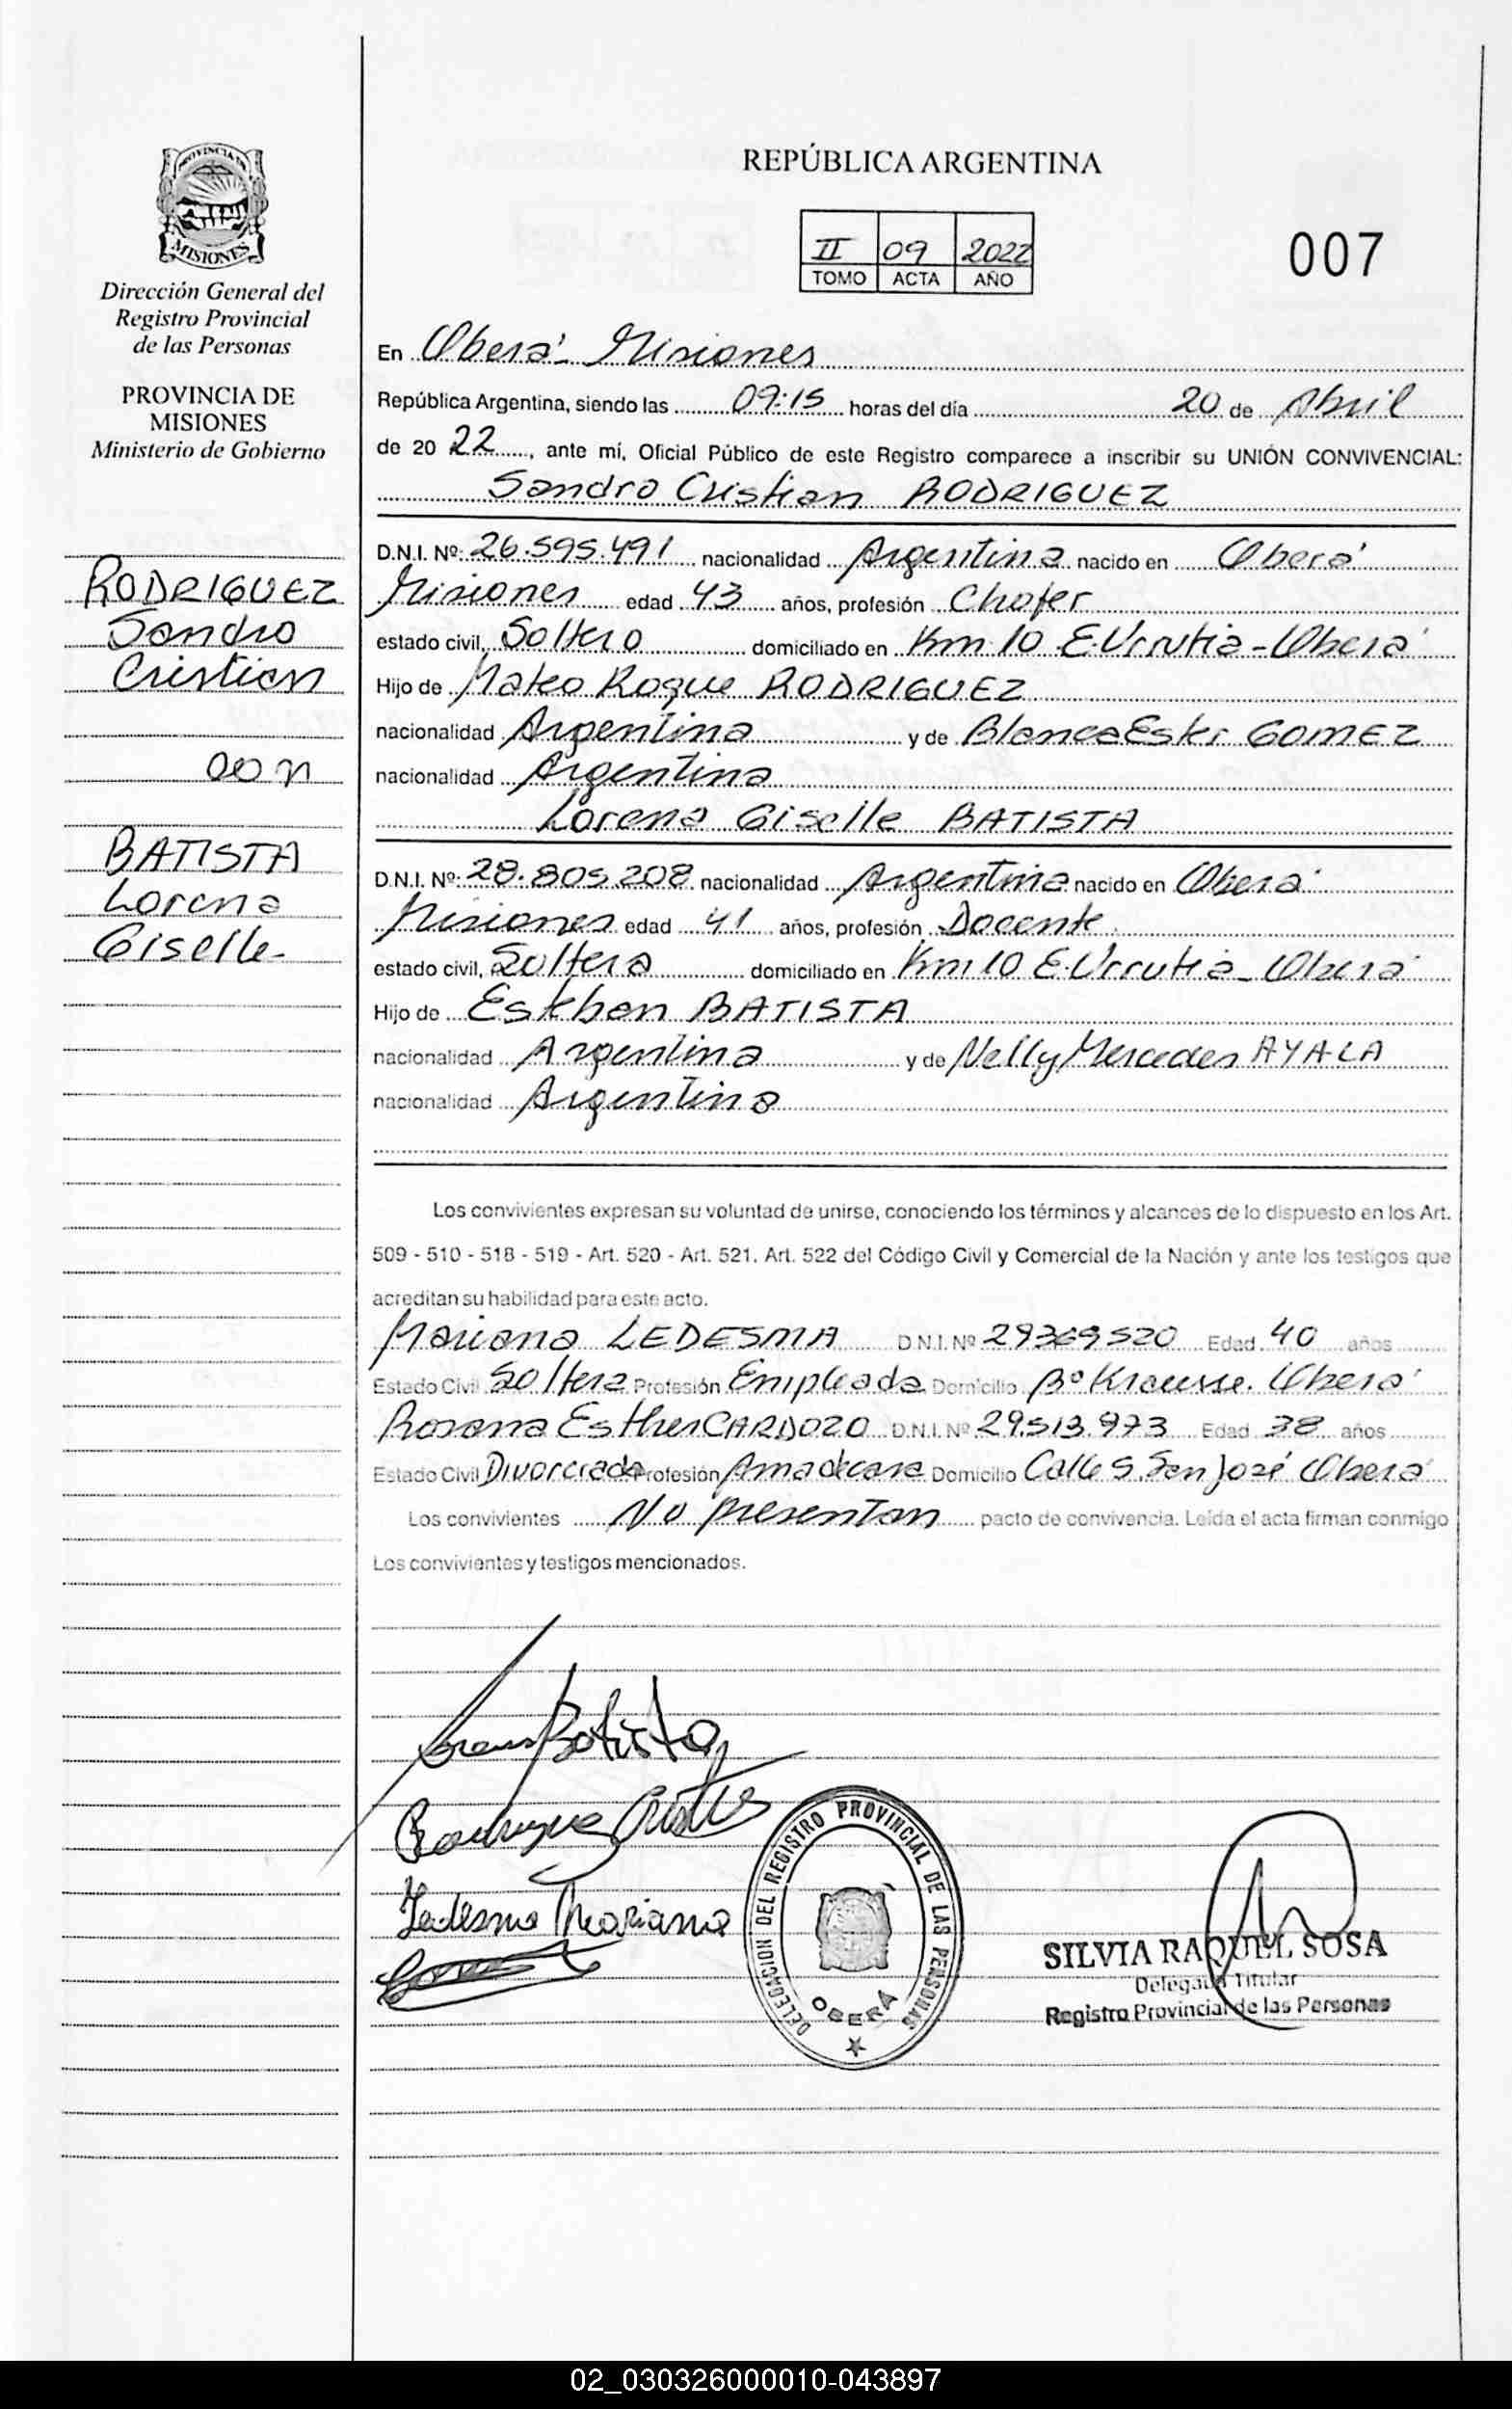 PROVINCIA DE
MISIONES
Dirección General del
Registro Provincial
de las Personas
PROVINCIA DE
MISIONES
Ministerio de Gobierno
RODRIGUEZ
Sandro
Cristian
con
BATISTA
Lorena
Giselle
REPÚBLICA ARGENTINA
II 09 2022
TOMO ACTA AÑO
007
En Oberá - Misiones
República Argentina, siendo las 09:15 horas del día 20 de Abril
de 20 22, ante mí, Oficial Público de este Registro comparece a inscribir su UNIÓN CONVIVENCIAL:
Sandro Cristian RODRIGUEZ
D.N.I. Nº: 26.595.491 nacionalidad Argentina nacido en Oberá
Misiones edad 43 años, profesión Chofer
estado civil, Soltero domiciliado en Km 10 E. Urrutia - Oberá
Hijo de Mateo Roque RODRIGUEZ
nacionalidad Argentina y de Blanca Ester GOMEZ
nacionalidad Argentina
Lorena Giselle BATISTA
D.N.I. Nº: 28.805.208 nacionalidad Argentina nacido en Oberá
Misiones edad 41 años, profesión Docente
estado civil, Soltera domiciliado en Km 10 E. Urrutia - Oberá
Hijo de Esteban BATISTA
nacionalidad Argentina y de Nelly Mercedes AYALA
nacionalidad Argentina
Los convivientes expresan su voluntad de unirse, conociendo los términos y alcances de lo dispuesto en los Art.
509 - 510 - 518 - 519 - Art. 520 - Art. 521. Art. 522 del Código Civil y Comercial de la Nación y ante los testigos que
acreditan su habilidad para este acto.
Mariana LEDESMA D.N.I. Nº 29369520 Edad 40 años
Estado Civil Soltera Profesión Empleada Domicilio Bº Krausse. Oberá
Rosana Esther CARDOZO D.N.I. Nº 29.513.973 Edad 38 años
Estado Civil Divorciada Profesión Ama de casa Domicilio Calle S. San José Oberá
Los convivientes No presentan pacto de convivencia. Leída el acta firman conmigo
Los convivientes y testigos mencionados.
Batista
Ledesma Mariana
DELEGACION DEL REGISTRO PROVINCIAL DE LAS PERSONAS
OBERÁ
SILVIA RAQUEL SOSA
Delegada Titular
Registro Provincial de las Personas
02_030326000010-043897